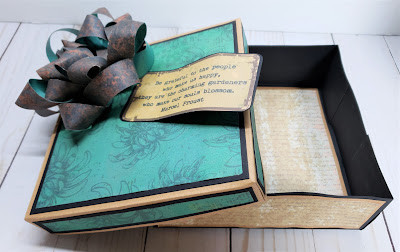 Be grateful to the people
who make us happy,
they are the charming gardeners
who make our souls blossom.
Marcel Proust